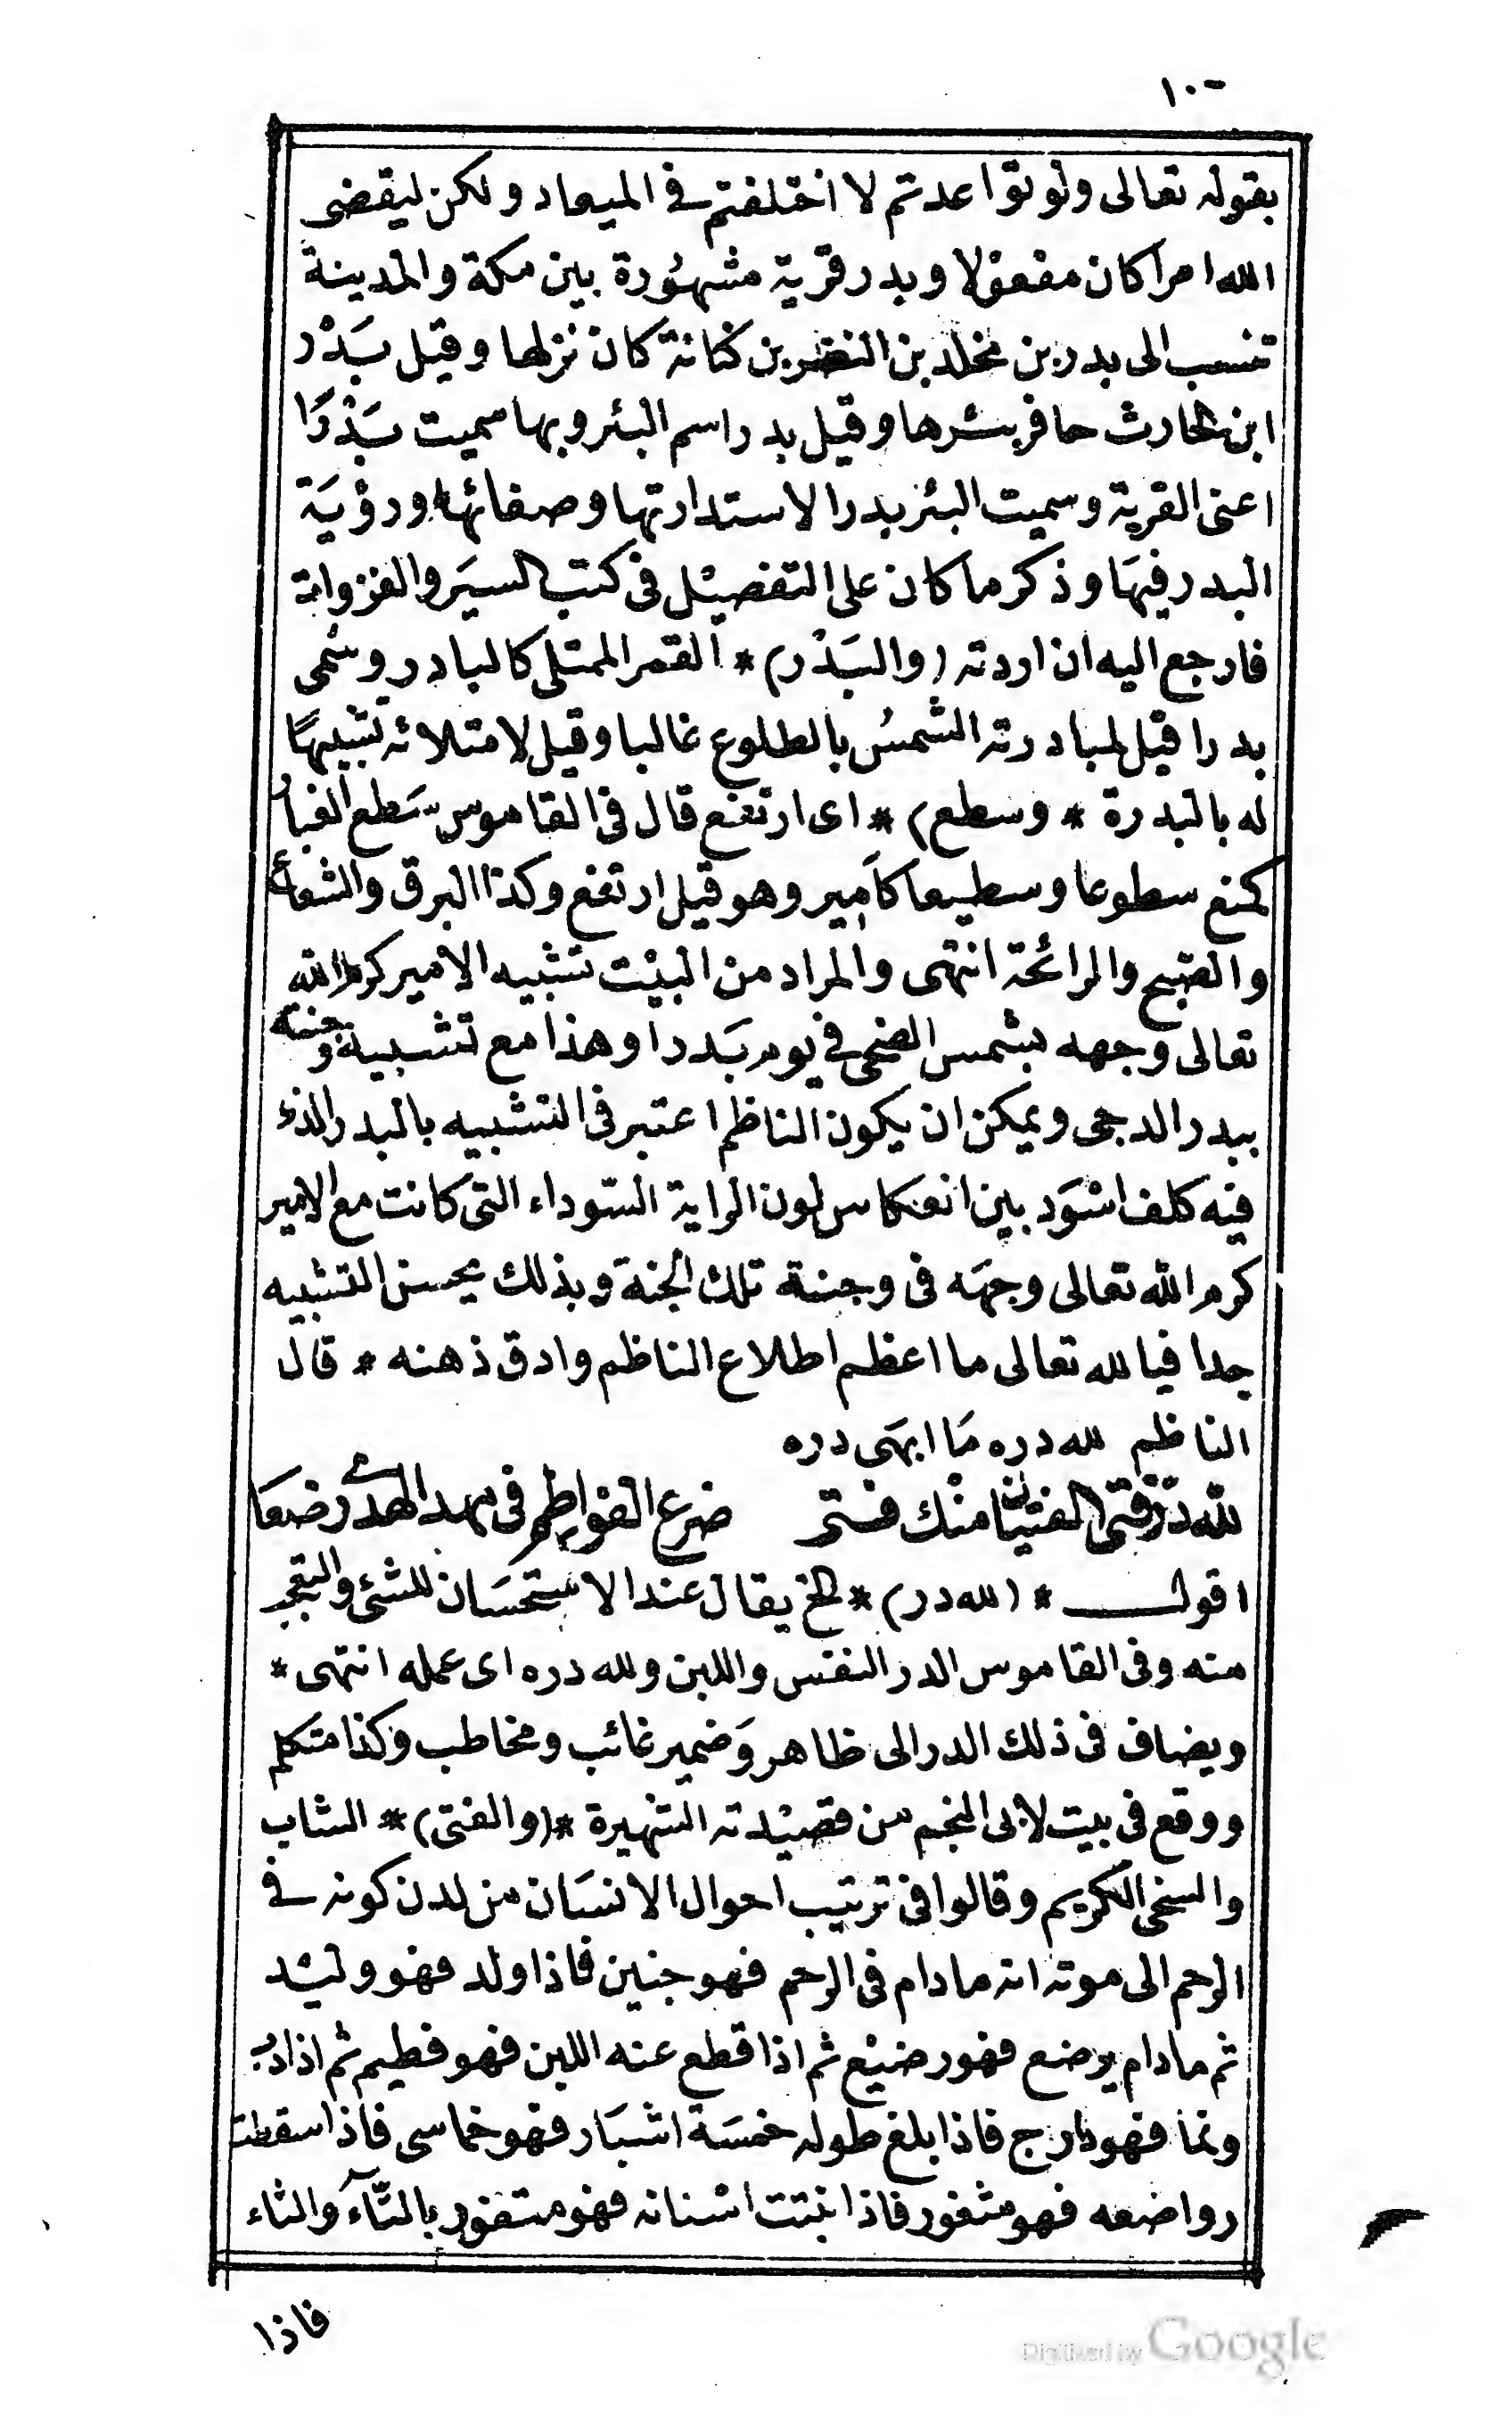 بقوله تعالى ولو تواعدتم لا اختلفتم في الميعاد ولكن ليقضى
الله امرا كان مفعولا وبدر قرية مشهورة بين مكة والمدينة
تنسب الى بدر بن مخلد بن النضر بن كنانة كان نزلها وقيل بَدْر
ابن الحارث حافر بئرها وقيل بدر اسم البئر وبها سميت بَدْرًا
اعنى القرية وسميت البئر بدرا لاستدارتها وصفائها ورؤيَة
البدر فيها وذكر ما كان على التفصيل فى كتب السيَر والغزوات
فارجع اليه ان اردته (والبَدْر) * القمر الممتلى كالبادر وسُمى
بدرا قيل لمبادرته الشمسُ بالطلوع غالبا وقيل لامتلائه تشبيهًا
له بالبدرة * وسطع) * اى ارتفع قال فى القاموس سَطع الغبارُ
كمنع سطوعا وسطيعا كأمير وهو قيل ارتفع وكذا البرق والشعاع
والصبح والرائحة انتهى والمراد من البيْت تشبيه الامير كرم الله
تعالى وجهه بشمس الضحى فى يوم بَدرا وهذا مع تشبيه وجنته
ببدر الدجى ويمكن ان يكون الناظم اعتبر فى التشبيه بالبدر الذى
فيه كلف اسْوَد بين انعكاس لون الراية السّوداء التى كانت مع الامير
كرم الله تعالى وجهَه فى وجنة تلك الجنة وبذلك يحسن التشبيه
جدا فيا لله تعالى ما اعظم اطلاع الناظم وادق ذهنه * قال
الناظم لله دره مَا ابهَى دره
لله دَرّ فتى الفتيان منْك فتى ضرع الفواطِم فى مهد الهدى رضعَا
اقول * (لله در) * الخ يقال عند الاستحسَان للشئ والتعجب
منه وفى القاموس الدر النفس واللبن ولله دره اى عمله انتهى *
ويضاف فى ذلك الدر الى ظاهر وَضمير غائب ومخاطب وكذا متكلم
ووقع فى بيت لابى النجم من قصيْدته الشهيرة * (والفتى) * الشاب
والسخى الكريم وقالوا فى ترتيب احوال الانسَان من لدن كونه فى
الرحم الى موته انه مادام فى الرحم فهو جنين فاذا ولد فهو وليْد
ثم مادام يرضع فهو رضيْع ثم اذا قطع عنه اللبن فهو فطيم ثم اذا دب
ونما فهو دارج فاذا بلغ طوله خمسَة اشبَار فهو خماسى فاذا سقطت
رواضعه فهو مثغور فاذا نبتت اسْنانه فهو متغور بالتّآء والثاء
فاذا
Digitized by Google